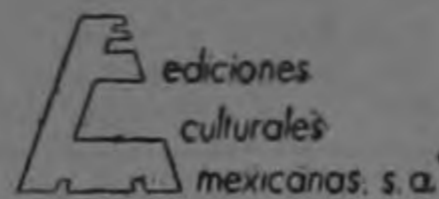 ediciones
culturales
mexicanas, s. a.